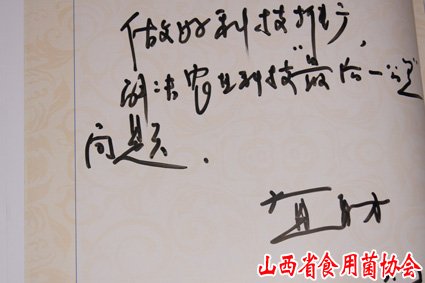 做好科技推广，
解决农业科技“最后一道”
问题．
山西省食用菌协会